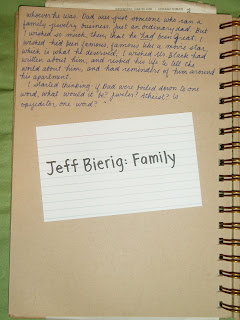 whoever he was. Dad was just someone who ran a
family jewelry business. Just an ordinary dad. But
I wished so much, then, that he had been great. I
wished he'd been famous, famous like a movie star,
which is what he deserved. I wished Mr. Black had
written about him, and risked his life to tell the
world about him, and had reminders of him around
his apartment.
I started thinking: if Dad were boiled down to one
word, what would it be? Jeweler? Atheist? Is
copyeditor one word?
Jeff Bierig: Family